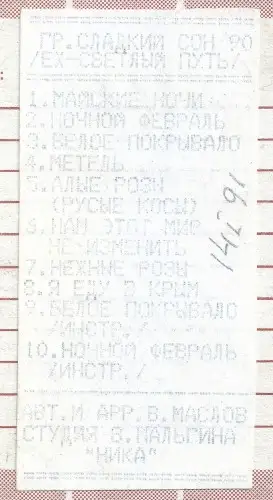 ГР.СЛАДКИЙ СОН'90
/ЕХ-СВЕТЛЫЙ ПУТЬ/
1.МАЙСКИЕ НОЧИ
2.НОЧНОЙ ФЕВРАЛЬ
3.БЕЛОЕ ПОКРЫВАЛО
4.МЕТЕЛЬ
5.АЛЫЕ РОЗЫ
(РУСЫЕ КОСЫ)
6.НАМ ЭТОТ МИР
НЕ ИЗМЕНИТЬ
7.НЕЖНЫЕ РОЗЫ
8.Я ЕДУ В КРЫМ
9.БЕЛОЕ ПОКРЫВАЛО
/ИНСТР./
10.НОЧНОЙ ФЕВРАЛЬ
/ИНСТР./
АВТ.И АРР.В.МАСЛОВ
СТУДИЯ В.МАЛЬГИНА
"НИКА"